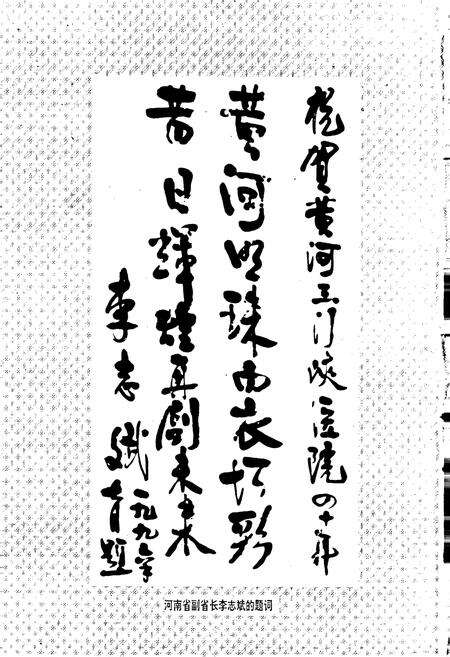 祝贺黄河三门峡医院四十年
黄河明珠彩
昔日辉煌再创未来
李志斌
题
河南省副省长李志斌的题词